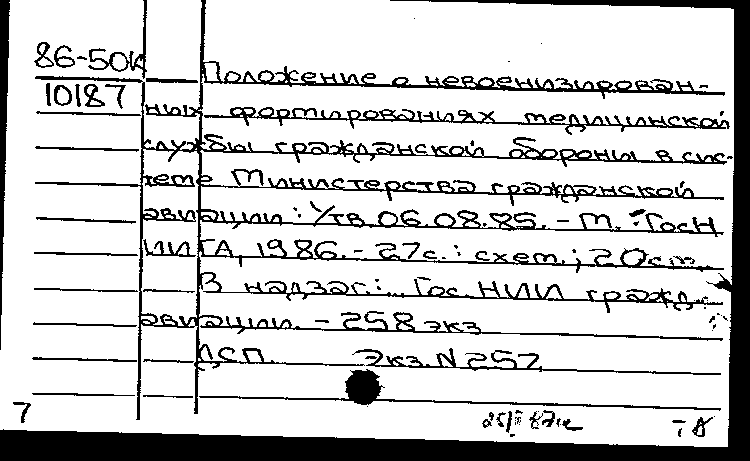 86-50к
10187
Положение о невоенизирован-
ных формированиях медицинской
службы гражданской обороны в сис-
теме Министерства гражданской
авиации: Утв. 06.08.85. - М.: ГосН
ИИГА, 1986. - 27с.: схем.; 20см.
В надзаг.: Гос. НИИ гражд.
авиации. - 258 экз
ДСП. Экз. N 257
7